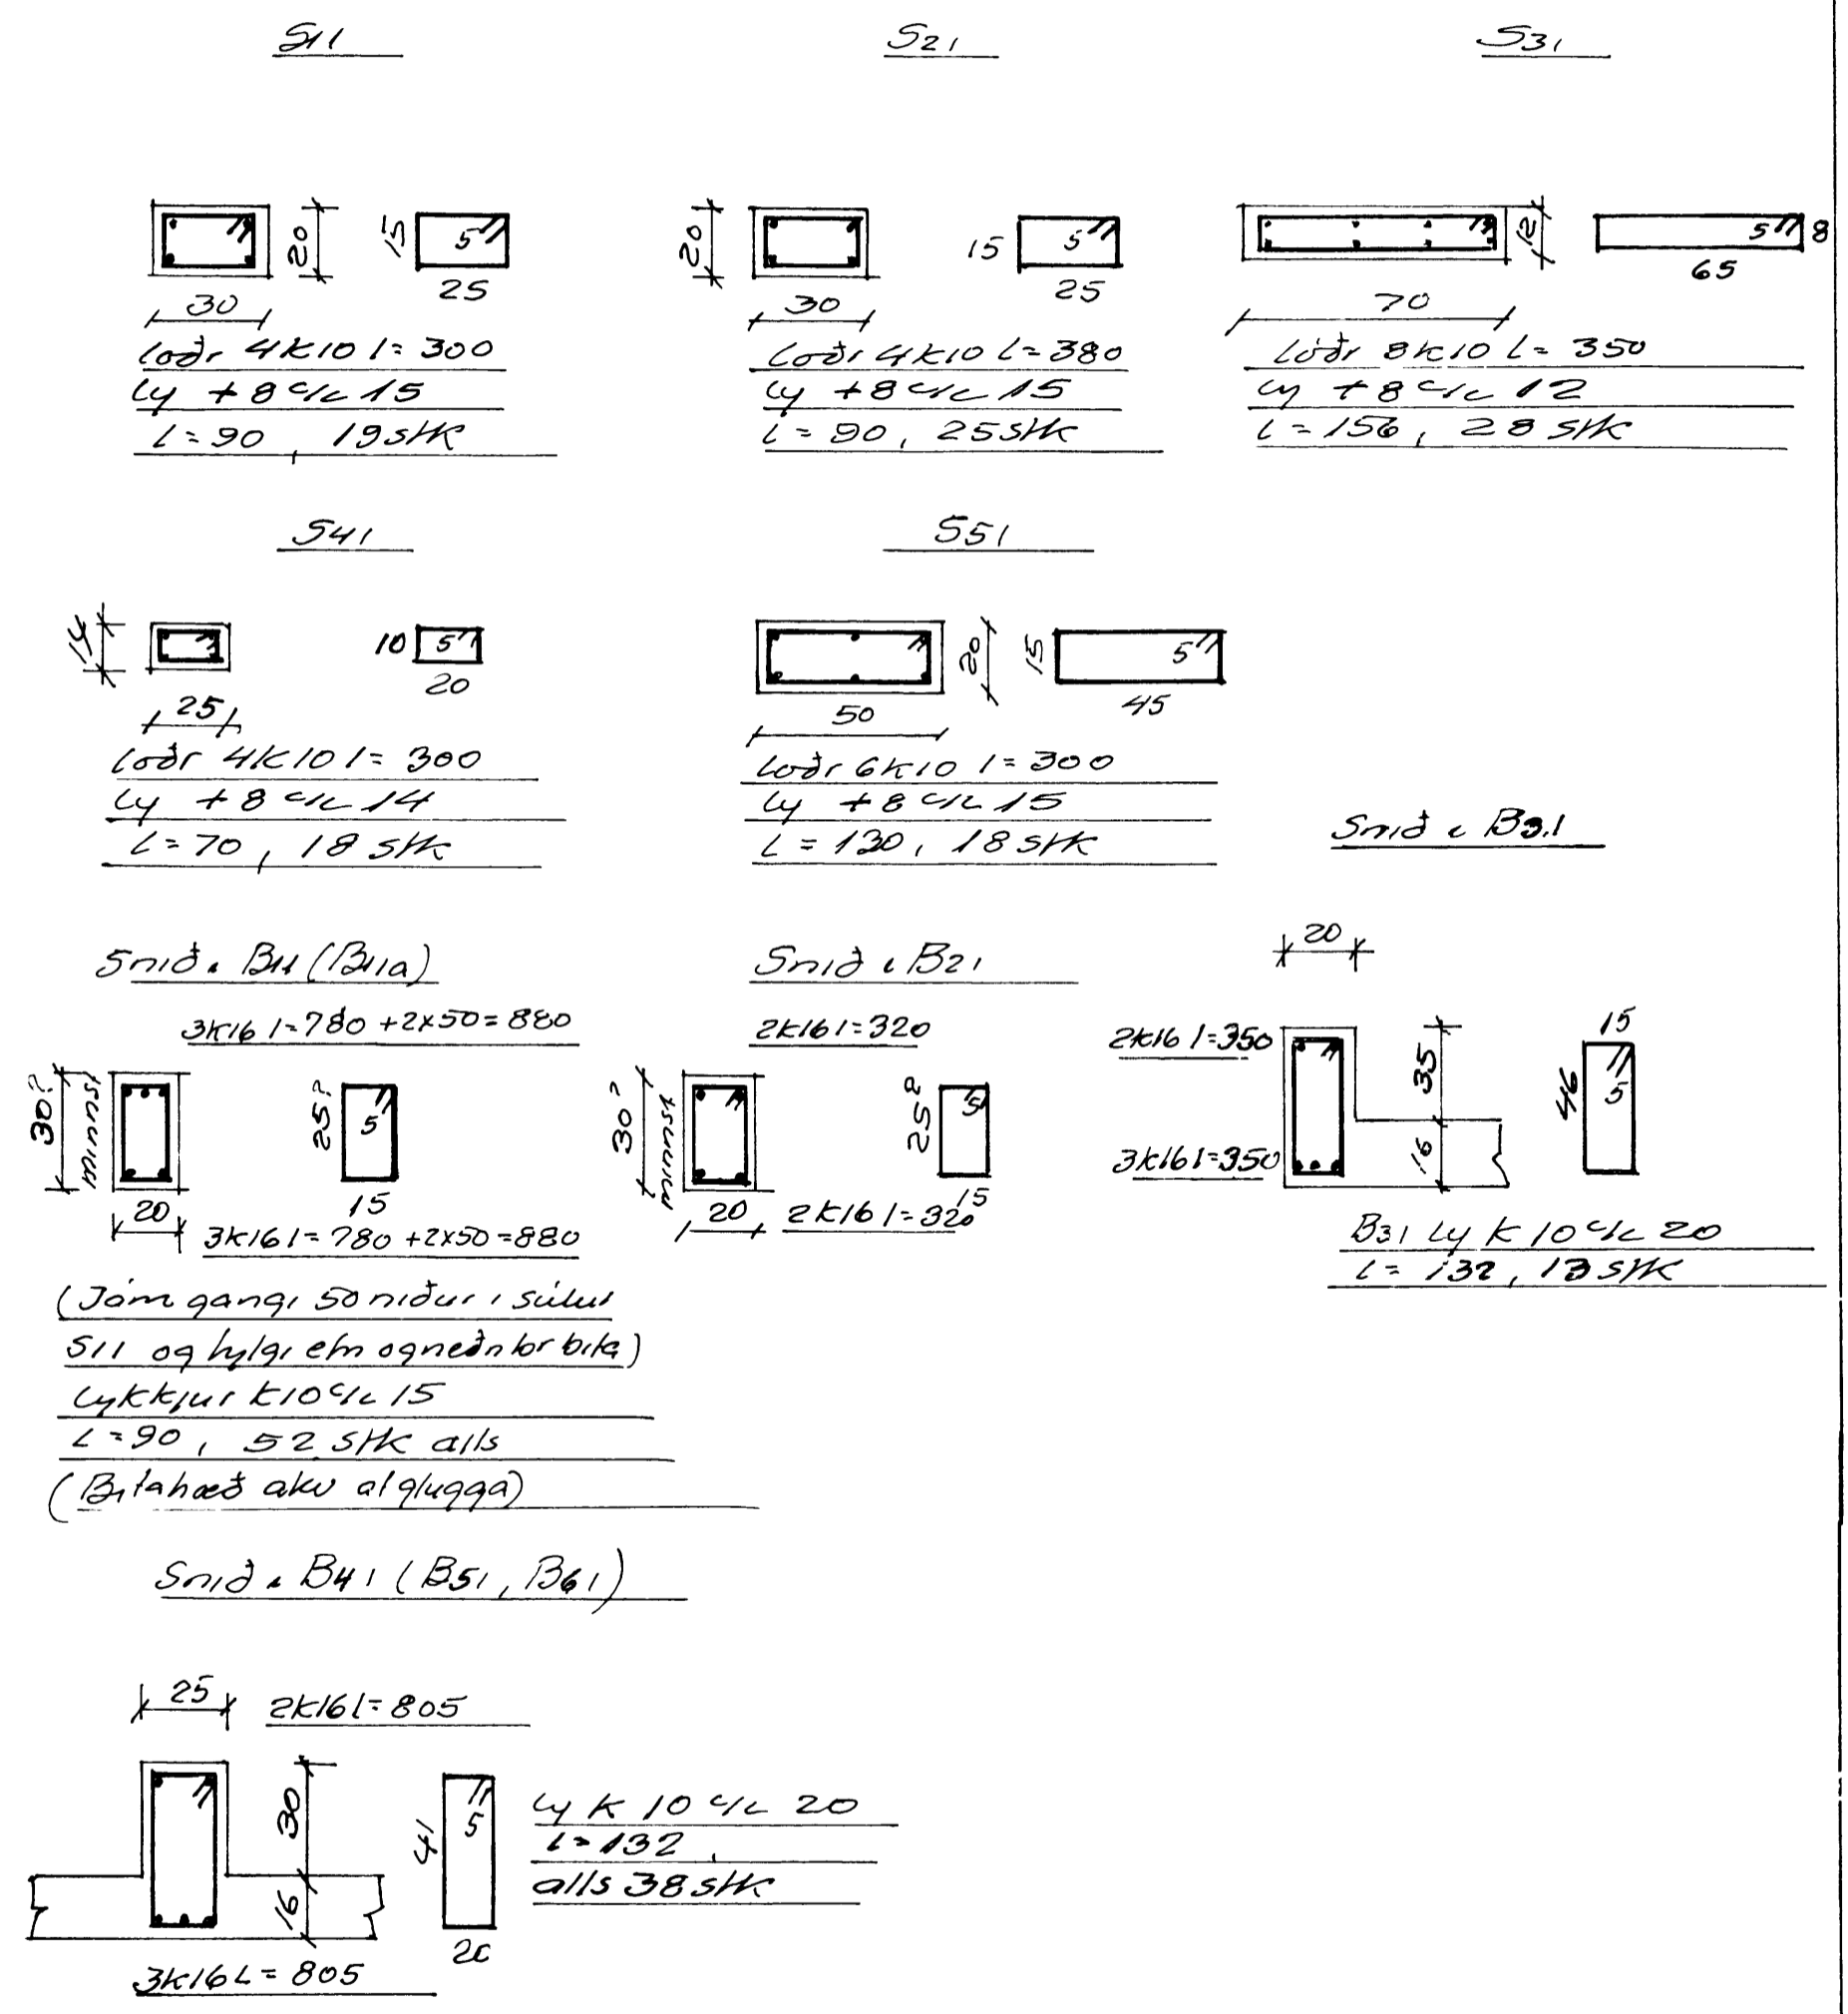 S11
20
15
5
25
30
loðr 4K10 l=300
ly +8 c/c 15
l=90, 19 stk
S21
20
15
5
25
30
Loðr 4K10 l=380
ly +8 c/c 15
l=90, 25 stk
S31
12
5
8
65
70
Lóðr 8K10 l=350
ly +8 c/c 12
l=156, 28 stk
S41
14
10
5
20
25
loðr 4K10 l=300
ly +8 c/c 14
l=70, 18 stk
S51
20
15
5
45
50
loðr 6K10 l=300
ly +8 c/c 15
l=130, 18 stk
Snið í B11 (B11a)
3K16 l=780+2x50=880
30?
minnst
25?
5
15
20
3K16 l=780+2x50=880
(Járn gangi 50 niður í súlur
S11 og fylgi efri og neðri br bita)
Lykkjur K10 c/c 15
L=90, 52 stk alls
(Bitahæð akv af glugga)
Snið í B21
2K16 l=320
30?
minnst
25?
5
15
20
2K16 l=320
Snið í B31
20
2K16 l=350
3K16 l=350
35
16
15
46
5
B31 ly K10 c/c 20
l=132, 13 stk
Snið í B41 (B51, B61)
25
2K16 l=805
30
16
41
5
20
3K16 L=805
ly K 10 c/c 20
l=132,
alls 38 stk